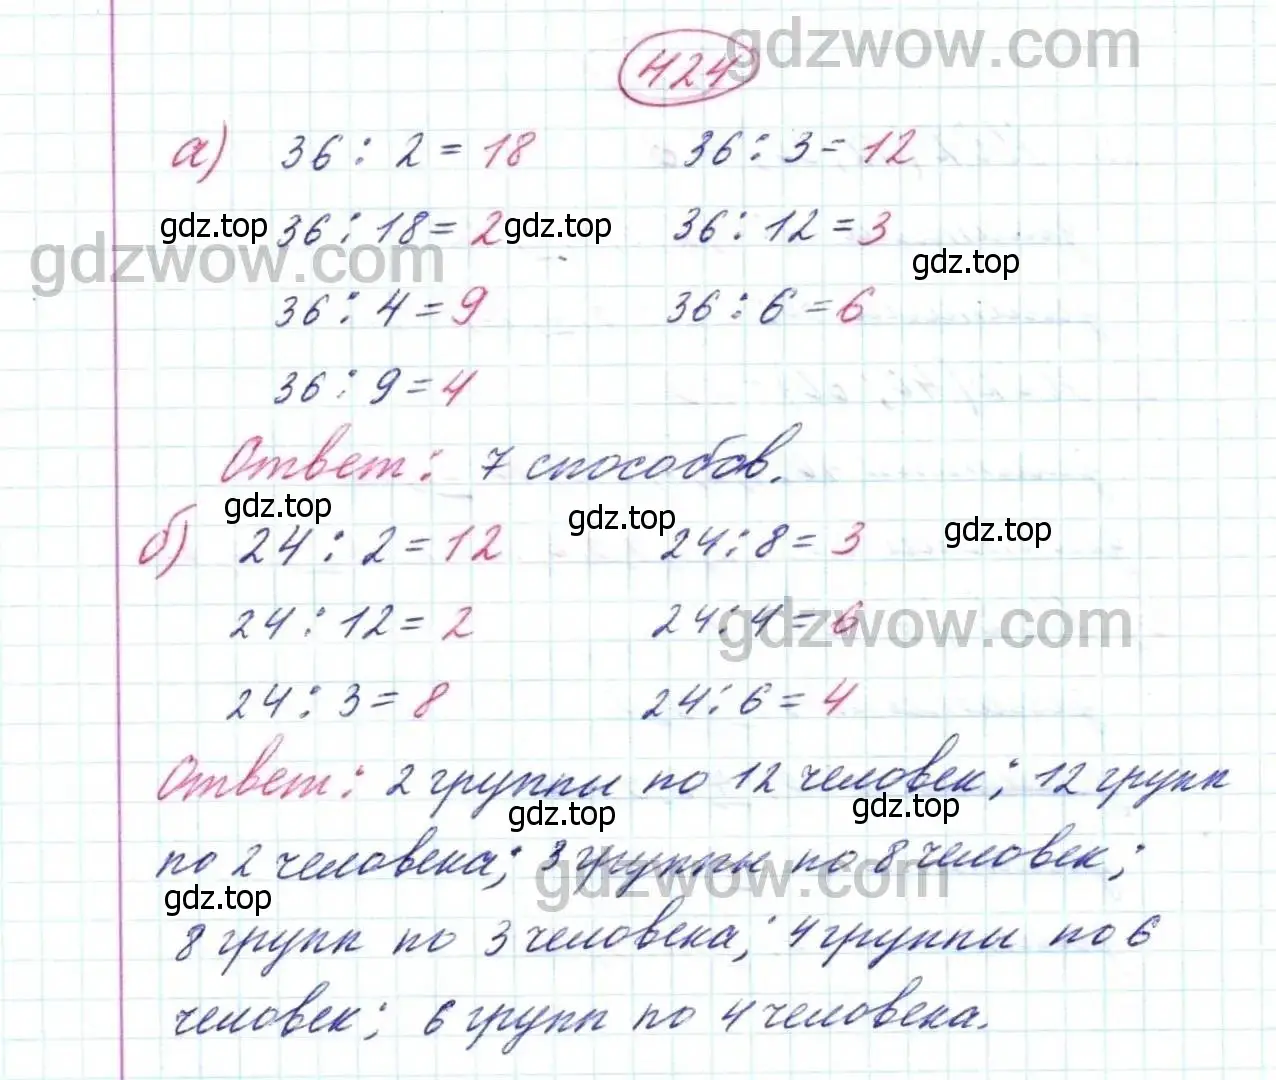 424
gdzwow.com
а) 36 : 2 = 18 36 : 3 = 12
gdz.top 36 : 18 = 2 gdz.top 36 : 12 = 3
gdzwow.com gdz.top
36 : 4 = 9 36 : 6 = 6
36 : 9 = 4
Ответ: 7 способов.
gdz.top gdz.top gdz.top
б) 24 : 2 = 12 24 : 8 = 3
24 : 12 = 2 24 : 4 = 6
gdzwow.com
24 : 3 = 8 24 : 6 = 4
Ответ: 2 группы по 12 человек; 12 групп
gdz.top gdz.top
по 2 человека; 3 группы по 8 человек;
gdz.top gdzwow.com
8 групп по 3 человека; 4 группы по 6
человек; 6 групп по 4 человека.